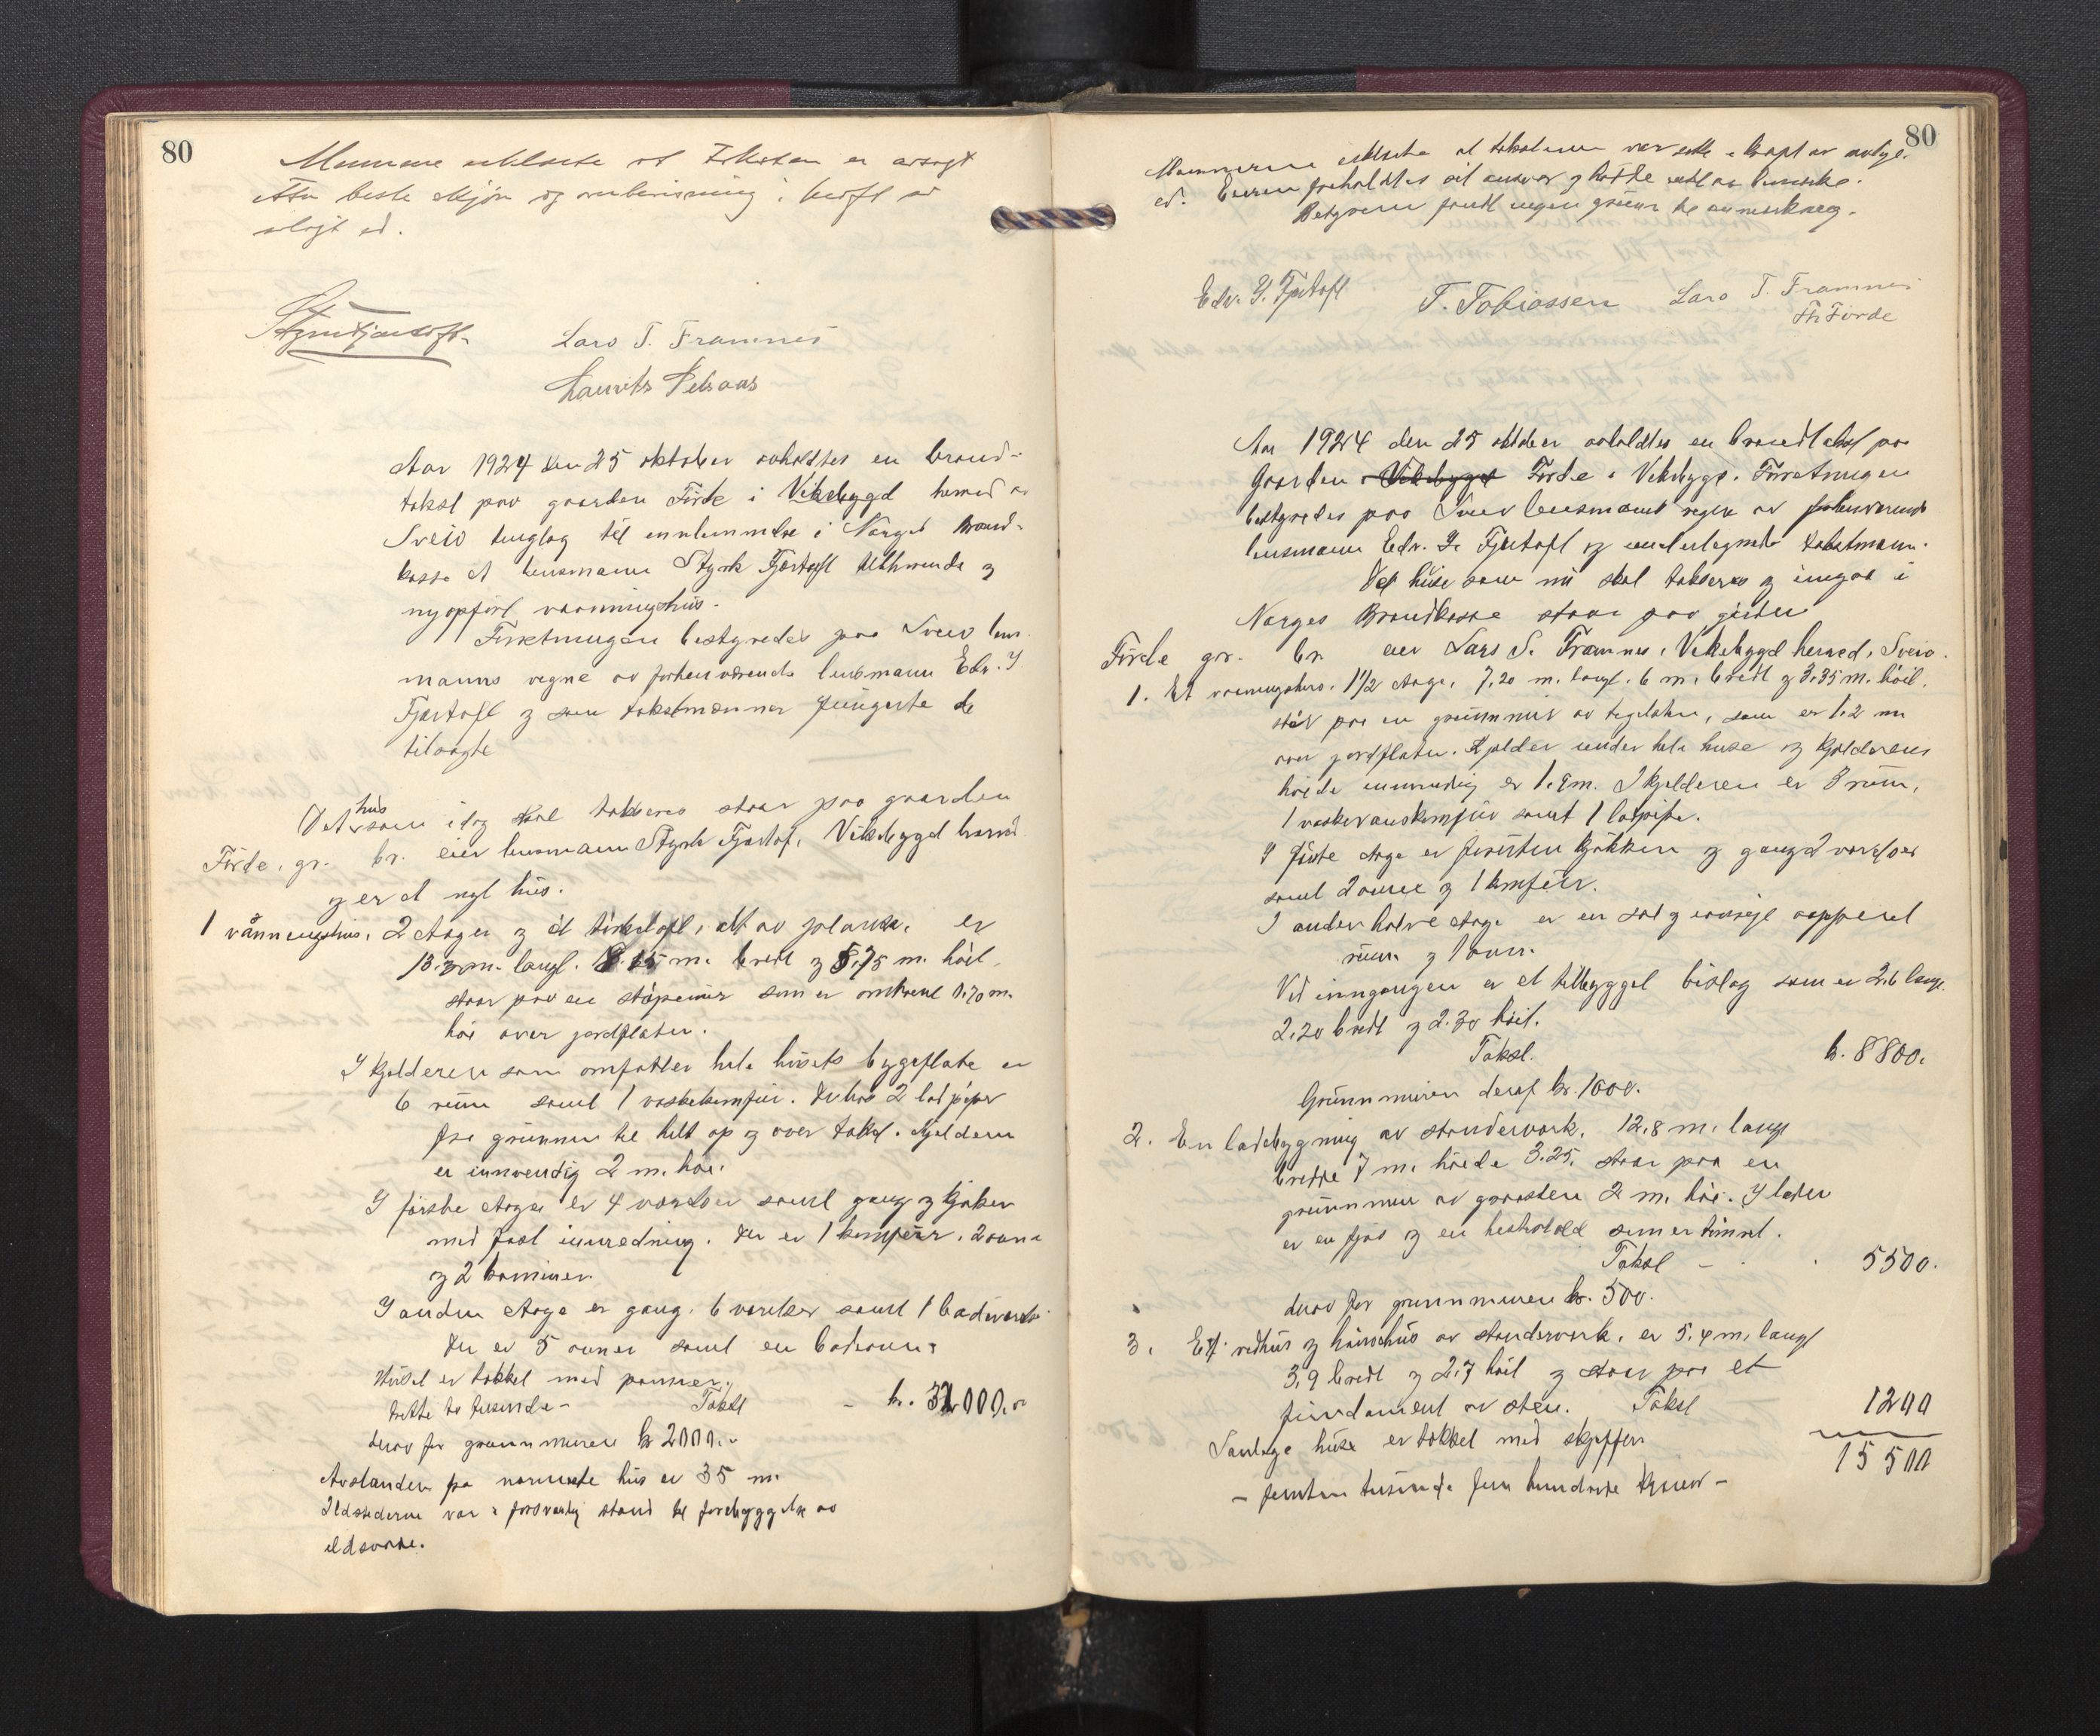 80
Mennene erklærte at taksten er avsagt
etter beste skjøn og overbevisning i kraft av
avlagt ed.
Styrk Fjørtoft
Lars T. Framnes
Laurits
Aar 1924 den 25 oktober avholdtes en brand-
takst paa gaarden Förde i Vikebygd herred av
Sveio tinglag til innlemmelse i Norges Brand-
kasse et lensmann Styrk Fjørtoft tilhörende og
nyopfört vaaningshus.
Forretningen bestyredes paa Sveio lens-
manns vegne av forhenværende lensmann Edv. Y.
Fjørtoft og som takstmænner fungerte de
tilsagte
Det hus som idag skal takseres staar paa gaarden
Förde, gr. br. eier lensmann Styrk Fjørtoft, Vikebygd herred
og er et nyt hus.
1 våningshus, 2 etager og et törkeloft, alt av planker, er
13.30 m. langt. 8.15 m. bredt og 5,75 m. höit,
staar paa en støpemur som er omtrent 1.70 m.
høi over jordflaten.
I kjelderen som omfatter hele husets bygeflate er
6 rum samt 1 vaskekomfür. Dertil 2 lødpiper
fra grunnen til helt op og over taket. Kjelderen
er innvendig 2 m. høi.
I første etage er 4 værelser samt gang og kjøken
med fast innredning. Der er 1 komfür, 2 ovne
og 2 kaminer
I anden etage er gang, 6 værelser samt 1 badeværelse
Der er 5 ovner samt en badeovn.
Huset er tækket med panner.
tretti to tusende - Takst - kr. 32000.00
derav for grunnmuren kr 2000.-
Avstanden fra nærmeste hus er 35 m.
Ildstederne var i forsvarlig stand til forebyggelse av
ildsvaade.
80
Mennerne erklærte at taksterne var satt i kraft av avlagt
ed. Eieren foreholdtes sit ansvar og hadde intet at bemerke.
Bestyreren fandt ingen grunn til anmerkning.
Edv. Y. Fjørtoft T. Tobiassen Lars T. Framnes
Th Förde
Aar 1924 den 25 oktober avholdtes en brandtakst paa
Gaarden i Vikebygd Förde i Vikebygd. Forretningen
bestyredes paa Sveio lensmanns vegne av forhenværende
lensmann Edv. Y. Fjørtoft og undertegnede takstmenn.
Det huse som nu skal takseres og inngaa i
Norges Brandkasse staar paa gaarden
Förde gr. br. eier Lars T. Framnes, Vikebygd herred, Sveio.
1. Et vaaningshus, 1 1/2 etage, 7,20 m. langt, 6 m. bredt og 3.35 m. höit,
står paa en grunnmur av teglsten, som er 1.2 m
over jordflaten. Kjelder under hele huse og kjelderens
høide innvendig er 1.9 m. I kjelderen er 3 rum,
1 vaskerumskomfür samt 1 lødpipe.
I første etage er kjøkken og gang 2 værelser
samt 2 ovne og 1 komfür.
I anden halve etage er en sal og uoppredd
rum og 1 ovn.
Ved inngangen er et tilbygget bislag som er 2.6 langt,
2,20 bredt og 2.30 höit.
Takst. kr. 8800.
Grunnmuren deraf kr. 1000.
2. En ladebygning av stenderverk, 12,8 m. langt
bredde 7 m. høide 3.25, staar paa en
grunnmur av graasten 2 m. høi. I laden
er en fjøs og en hestestald som er tömret.
Takst - 5500.
derav for grunnmuren kr. 500.
3. Et vedhus og hönsehus av stenderverk, er 5,4 m. langt
3,9 bredt og 2,7 höit og staar paa et
fundament av sten. Takst 1200
Samtlige huse er tækket med skiffer. 15 500
- femten tusende fem hundrede kroner -